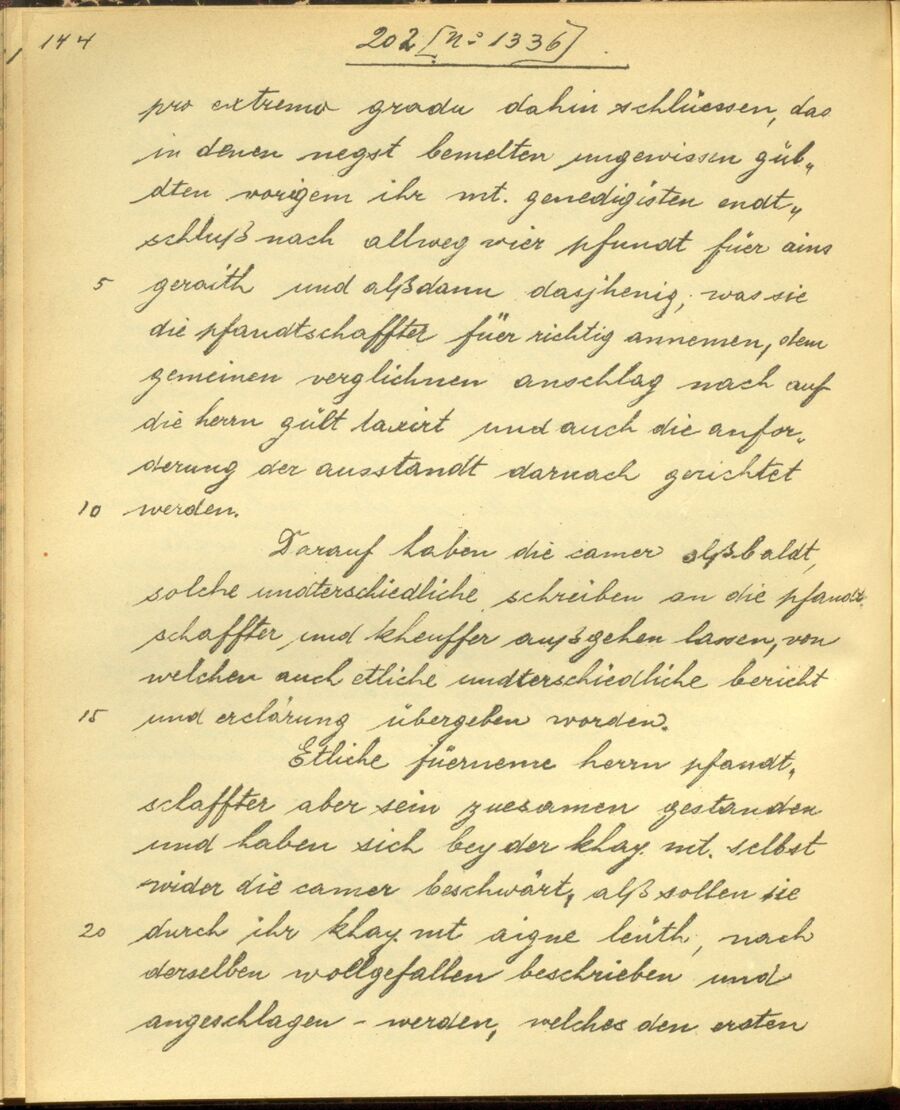 144
202 [N: 1336]
pro extremo gradu dahin schlüessen, das
in denen negst bemelten ungewissen güb„
dten vorigem ihr mt. genedigisten endt„
schluß nach allweg vier pfundt füer ains
5 geraith und alßdann dasjhenig, was sie
die pfandtschaffter füer richtig annemen, dem
gemeinen verglichnen anschlag nach auf
die herrn gült taxirt und auch die anfor„
derung der ausstandt darnach gerichtet
10 werden.
Darauf haben die camer alßbaldt,
solche undterschiedliche schreiben an die pfandt„
schaffter und kheuffer außgehen lassen, von
welchen auch etliche undterschiedliche bericht
15 und erclärung übergeben worden.
Etliche füerneme herrn pfandt„
schaffter aber sein zuesamen gestanden
und haben sich bey der khay. mt. selbst
wider die camer beschwärt, alß sollen sie
20 durch ihr khay. mt aigne leüth, nach
derselben wollgefallen beschrieben und
angeschlagen - werden, welches den ersten